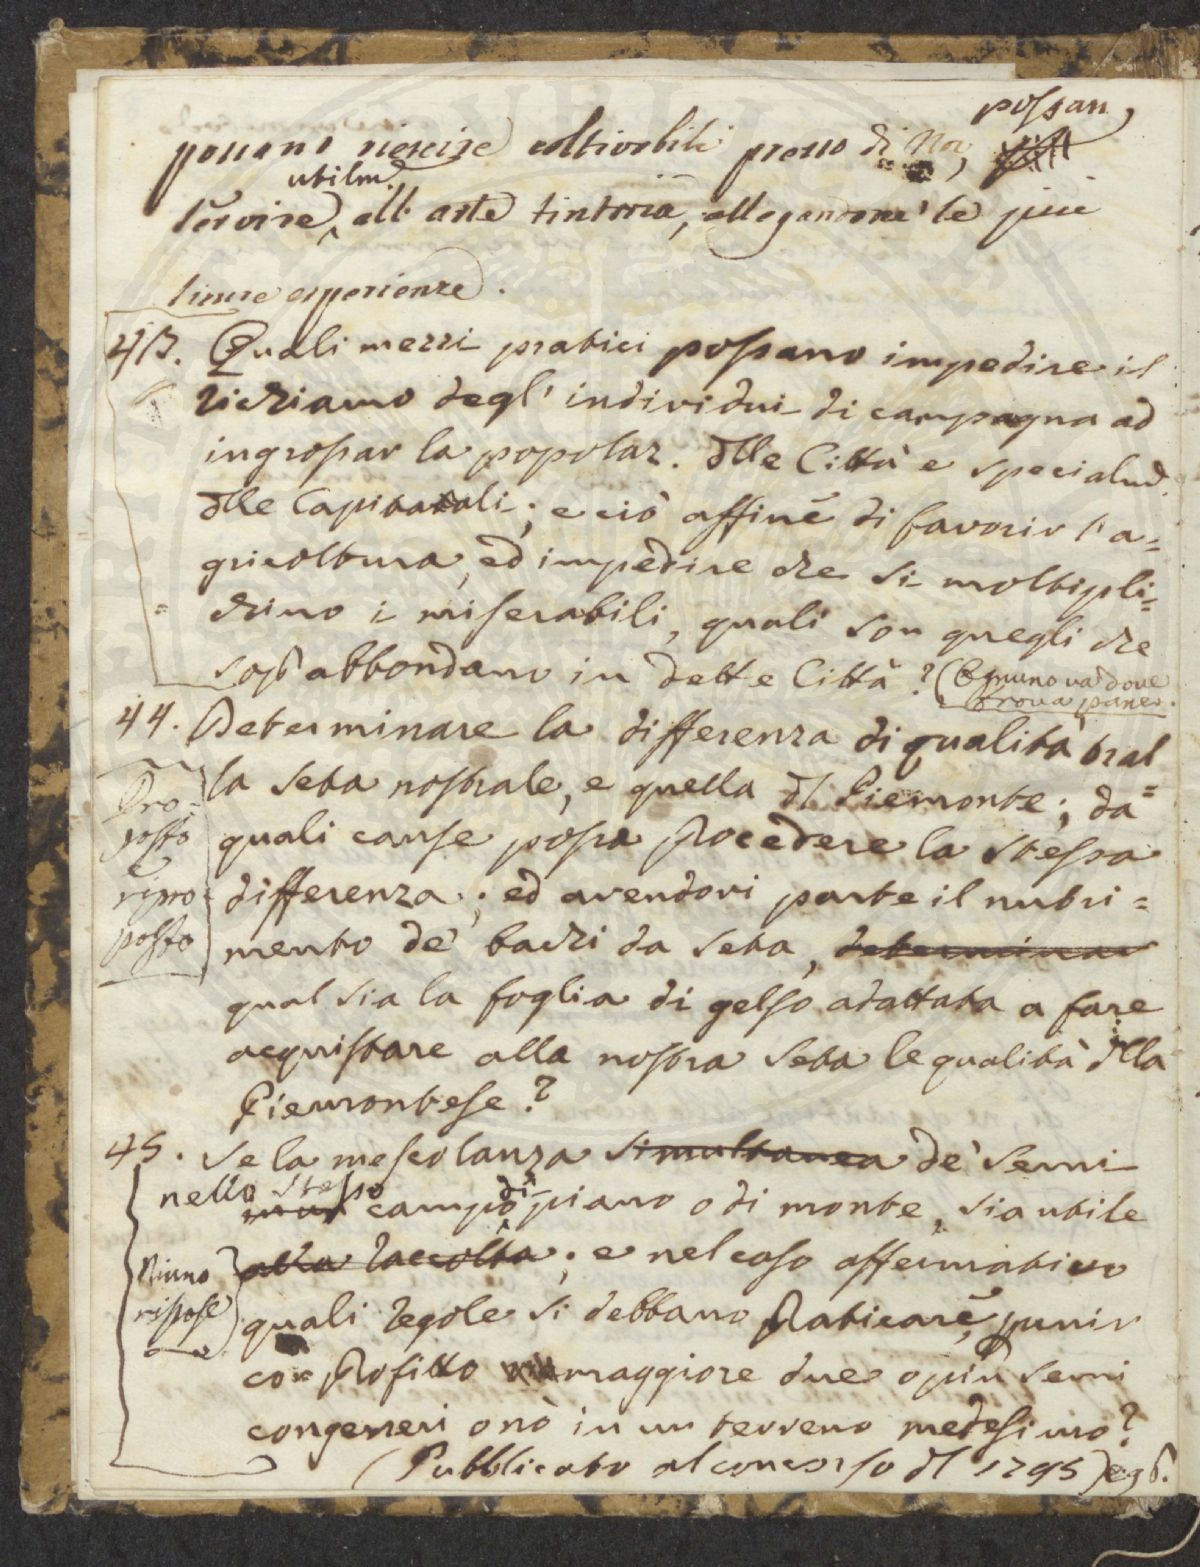 possan
possano riescire coltivabili presso di Noi,
utilmᵉ
servire, all' arte tintoria, allegandone le più
sicure esperienze.
43. Quali mezzi pratici possano impedire il
richiamo degl' individui di campagna ad
ingrossar la popolaz. dlle Città e specialmᵉ.
dlle Capitali; e ciò affine di favorir l'a=
gricoltura, ed impedire che si moltipli=
chino i miserabili, quali son quegli che
abbondano in dette Città? (Ognuno va dove
trova pane.
44. Determinare la differenza di qualità tral
la seta nostrale, e quella dl Piemonte; da=
Pro=
posto
ripro=
posto
quali cause possa procedere la stessa
differenza; ed avendovi parte il nutri=
mento de' bachi da seta, determinar
qual sia la foglia di gelso adattata a fare
acquistare alla nostra seta le qualità dlla
Piemontese?
45. Se la mescolanza simultanea de' semi
nello stesso campo di piano o di monte, sia utile
alla raccolta; e nel caso affermativo
Niuno
rispose
quali regole si debbano praticare, p unir
con profitto maggiore due o più semi
congeneri o nò in un terreno medesimo?
(Pubblicato al concorso dl 1795)